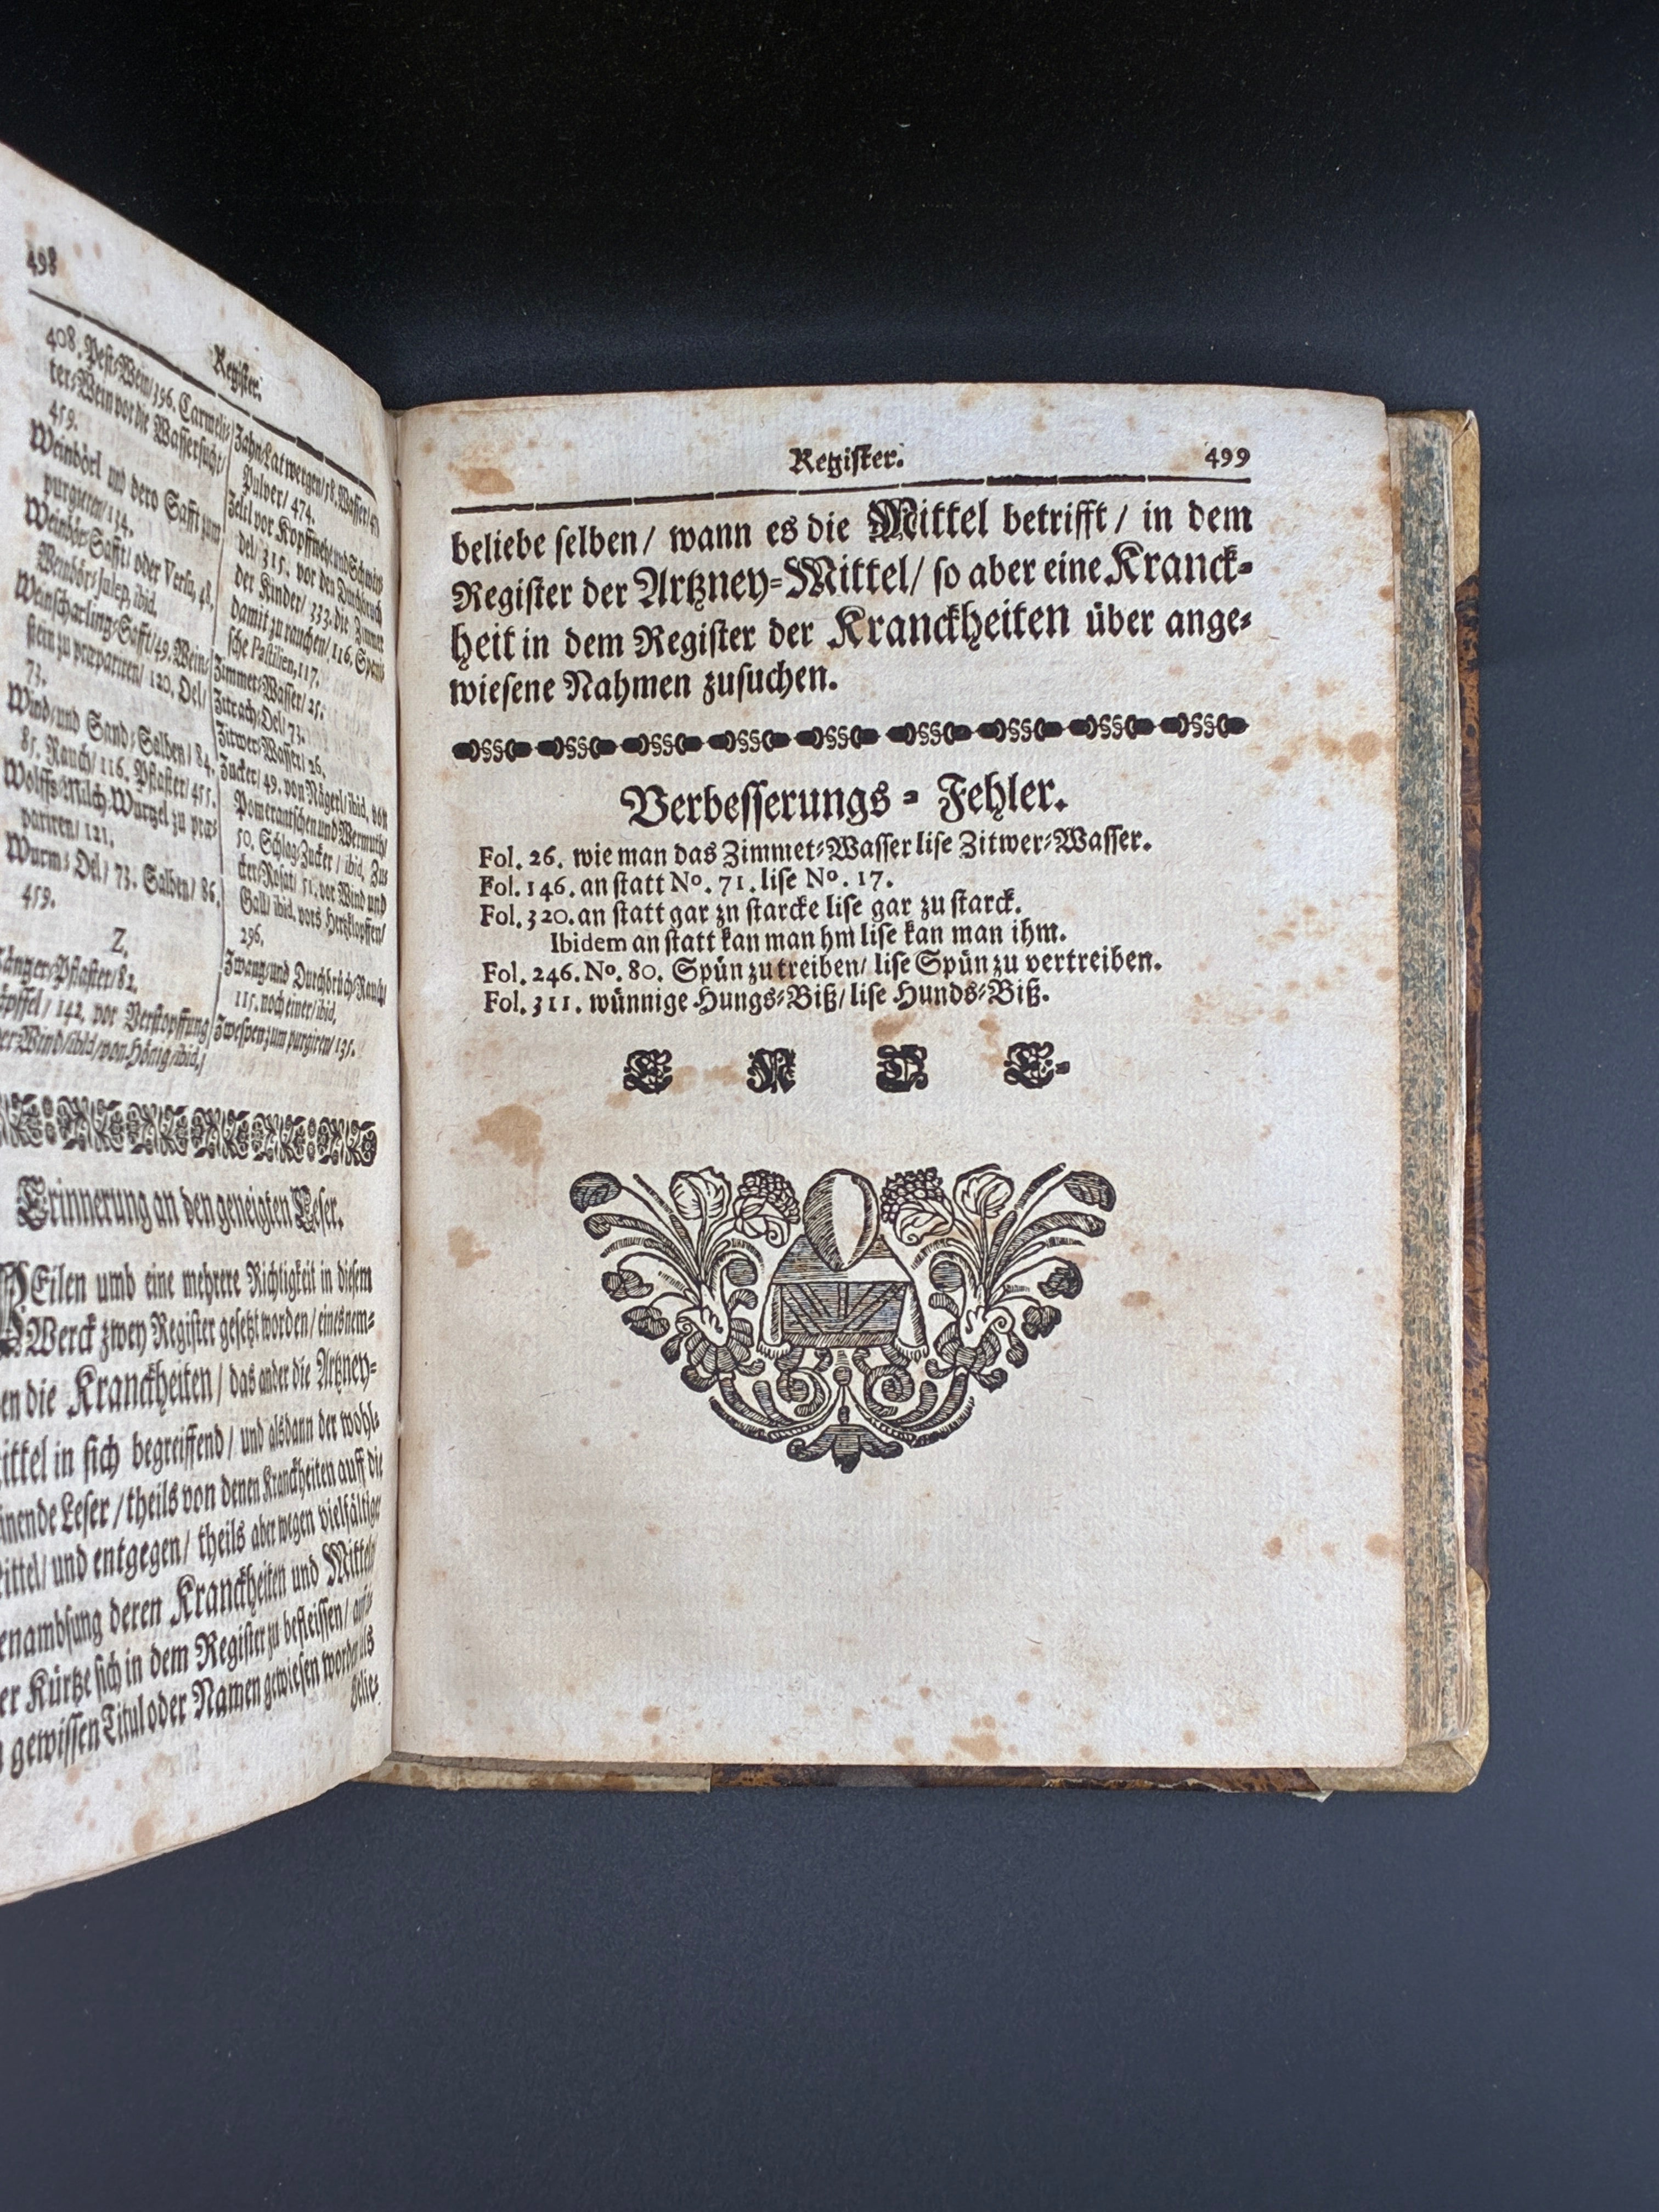 498
Register.
408. Pest-Wein/396. Carmeli-
ter-Wein vor die Wassersucht/
459.
Weinbörl und dero Safft zum
purgiren/134.
Weinbör-Safft/ oder Versu, 48.
Weinbör-Julep, ibid.
Weinscharling-Safft/49. Wein-
stein zu præpariren/ 120. Oel/
73.
Wind/und Sand-Salben/ 84.
85. Rauch/ 116. Pflaster/ 455.
Wolffs-Milch-Wurtzel zu præ-
pariren/ 121.
Wurm-Oel/ 73. Salben/ 86.
459.
Z.
Pflaster/82.
142. vor Verstopffung
Wind/ibid/von Hönig/ibid.
Zahn-Latwergen/58. Wasser/
Pulver/ 474.
Zeltl vor Kopffwehe und Schwin-
del/ 315. vor den Durchbruch
der Kinder/ 333. die Zimmer
damit zu rauchen/ 116. Spani-
sche Pastilien, 117.
Zimmet-Wasser/ 25.
Zitrach-Oel/ 73.
Zitwer-Wasser/ 26.
Zucker/ 49. von Nägerl/ ibid.
Pomerantschen und Wermuth/
50. Schlag-Zucker / ibid. Zu-
cker-Rosat/ 51. vor Wind und
Gall/ ibid. vors Hertzklopffen/
296.
Zwang/und Durchbruch-Rauch/
115. noch einer/ibid.
Zwespen zum purgiren/ 135.
Erinnerung an den geneigten Leser.
WEilen umb eine mehrere Richtigkeit in diesem
Werck zwey Register gesetzt worden/ eines nem-
die Kranckheiten / das ander die Artzney-
in sich begreiffend/ und alsdann der wohl-
Leser / theils von denen Kranckheiten auff die
und entgegen/ theils aber wegen vielfältiger
deren Kranckheiten und Mitteln
Kürtze sich in dem Register zu befleissen/
gewissen Titul oder Namen gewiesen worden als
belie-
Register. 499
beliebe selben/ wann es die Mittel betrifft/ in dem
Register der Artzney-Mittel/ so aber eine Kranck-
heit in dem Register der Kranckheiten über ange-
wiesene Nahmen zusuchen.
Verbesserungs-Fehler.
Fol. 26. wie man das Zimmet-Wasser lise Zitwer-Wasser.
Fol. 146. an statt No. 71. lise No. 17.
Fol. 320. an statt gar zn starcke lise gar zu starck.
Ibidem an statt kan man hm lise kan man ihm.
Fol. 246. No. 80. Spün zu treiben/ lise Spün zu vertreiben.
Fol. 311. wünnige Hungs-Biß/ lise Hunds-Biß.
E N D E.